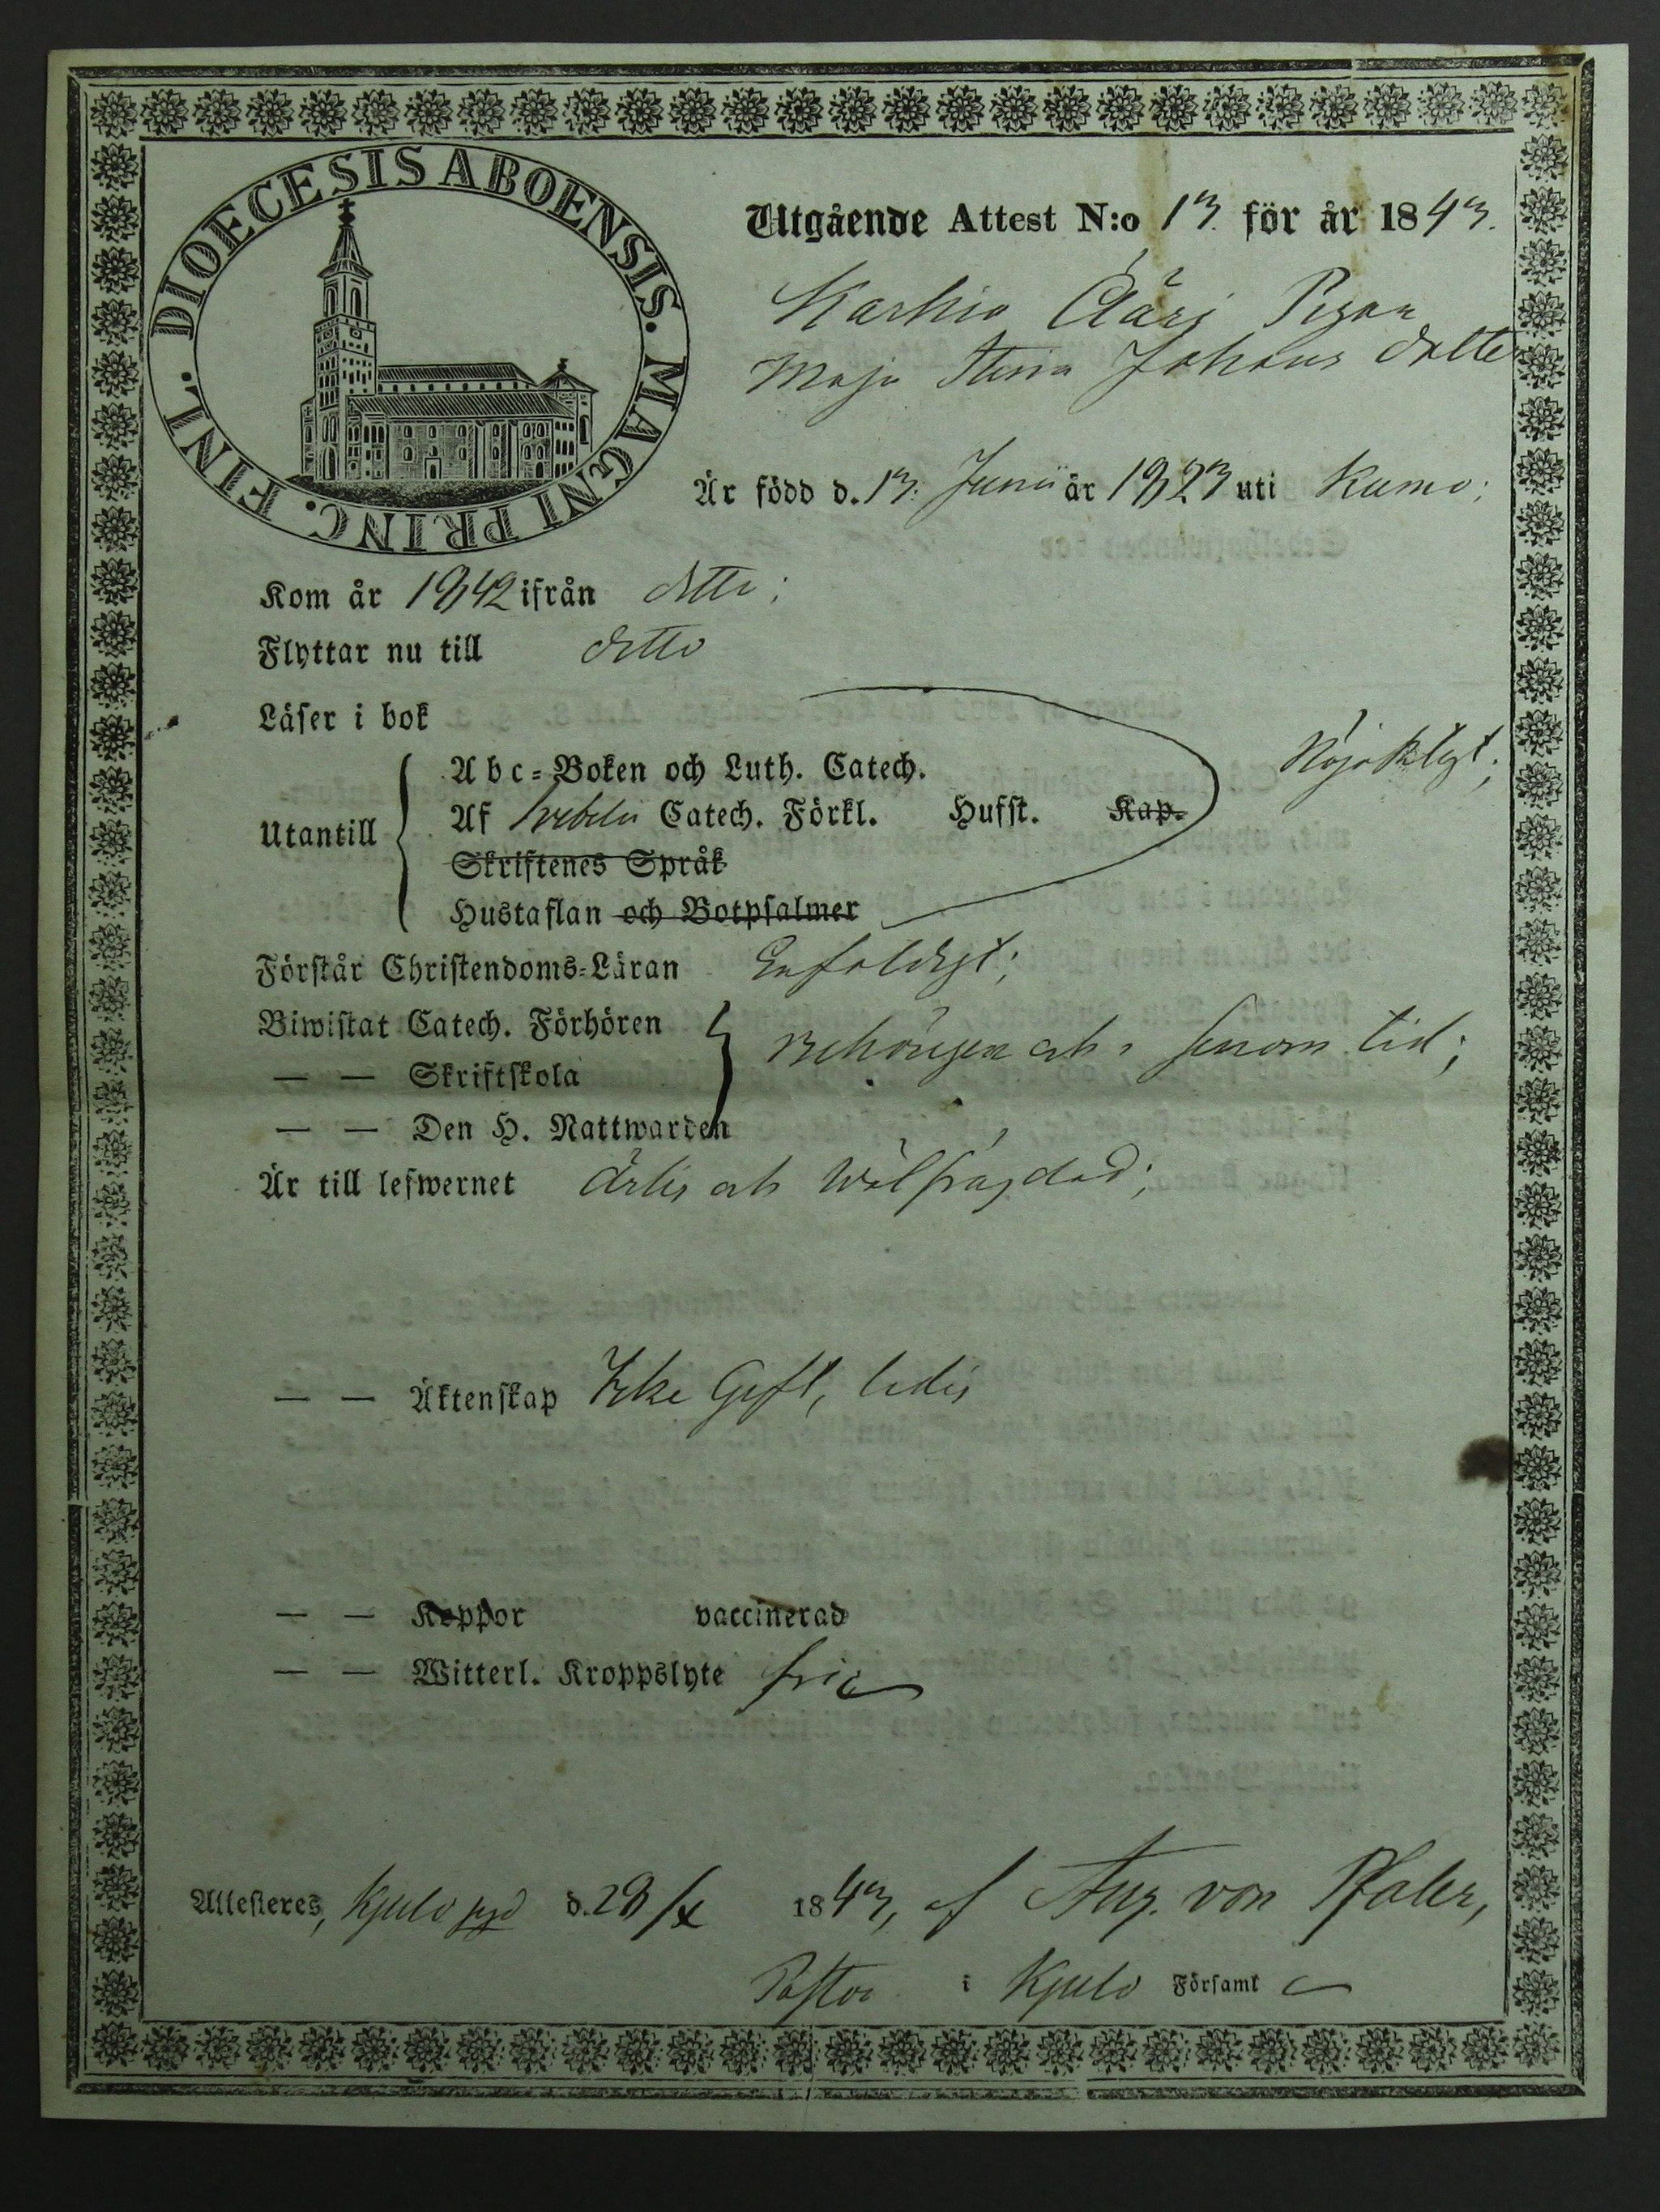 DIOECESIS ABOENSIS. MAGNI PRINC. FINL.
Utgående Attest N:o 13. för år 1843.
Karhio Äärj Pigan
Maja Stina Johans dotter
Är född d. 13. Junii år 1823 uti Kumo;
Kom år 1842 ifrån ditto;
Flyttar nu till ditto
Läser i bok
Nöjaktigt;
Abc-Boken och Luth. Catech.
Utantill
Af Svebelii Catech. Förkl. Hufst. Kap.
Skriftenes Språk
Hustaflan och Botpsalmer
Förstår Christendoms-Läran Enfaldigt;
Biwistat Catech. Förhören
— — Skriftskola
behörigen och i sinom tid;
— — Den H. Nattwarden
Är till lefwernet ärlig och wälfrägdad;
— — Äktenskap Icke Gift, ledig
— — Koppor vaccinerad
— — Witterl. Kroppslyte fri
Attesteres, Kjulo pgd d. 28/x 1843, af Aug. von Pfaler,
Pastor i Kjulo Församl